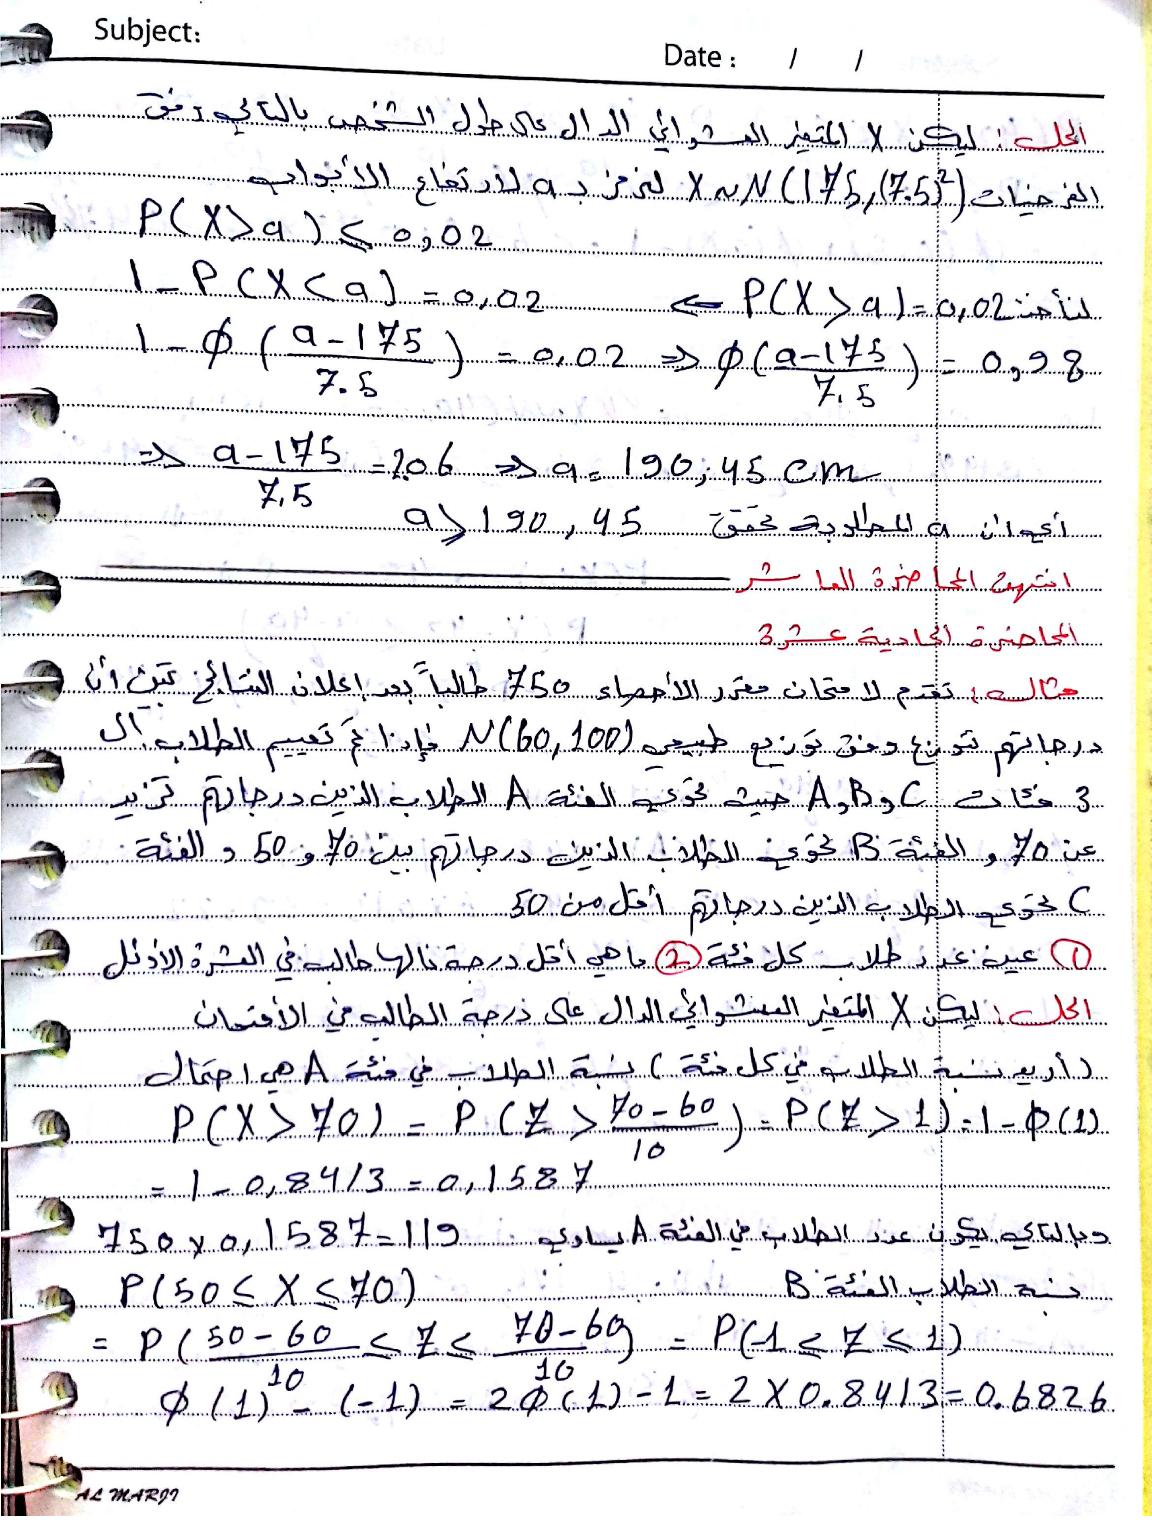 Subject:
Date : / /
الحل : ليكن X المتغير العشوائي الدال على طول الشخص بالتالي وفق
الفرضيات X~N(175,(7.5)²) لنرمز بـ a لارتفاع الأبواب
P(X>a) ≤ 0,02
لنأخذ P(X>a)=0,02 ⇐ 1-P(X<a)=0,02
1-ϕ(a-175/7.5) = 0.02 ⇒ ϕ(a-175/7.5) = 0,98
⇒ a-175/7.5 = 2.06 ⇒ a = 190,45 cm
أي أن a المطلوبة تحقق a ≥ 190,45
انتهت المحاضرة العاشر
المحاضرة الحادية عشرة
مثال : تقدم لامتحان مقرر الأحصاء 750 طالباً بعد إعلان النتائج تبين أن
درجاتهم تتوزع وفق توزيع طبيعي N(60,100) فإذا تم تقييم الطلاب ال
3 فئات A,B,C حيث تحوي الفئة A الطلاب الذين درجاتهم تزيد
عن 70 و الفئة B تحوي الطلاب الذين درجاتهم بين 70 و 50 و الفئة
C تحوي الطلاب الذين درجاتهم أقل من 50
① عين عدد طلاب كل فئة ② ما هي أقل درجة نالها طالب في العشرة الأوئل
الحل : ليكن X المتغير العشوائي الدال على درجة الطالب في الأمتحان
(أريد نسبة الطلاب في كل فئة) نسبة الطلاب في فئة A هي احتمال
P(X>70) = P(Z > 70-60/10) = P(Z>1) = 1-ϕ(1)
= 1-0,8413 = 0,1587
وبالتالي يكون عدد الطلاب في الفئة A يساوي 750×0,1587=119
نسبة الطلاب الفئة B P(50≤X≤70)
= P(50-60/10 ≤ Z ≤ 70-60/10) = P(-1≤Z≤1)
ϕ(1) - (-1) = 2ϕ(1)-1 = 2×0.8413 = 0.6826
AL MARJI